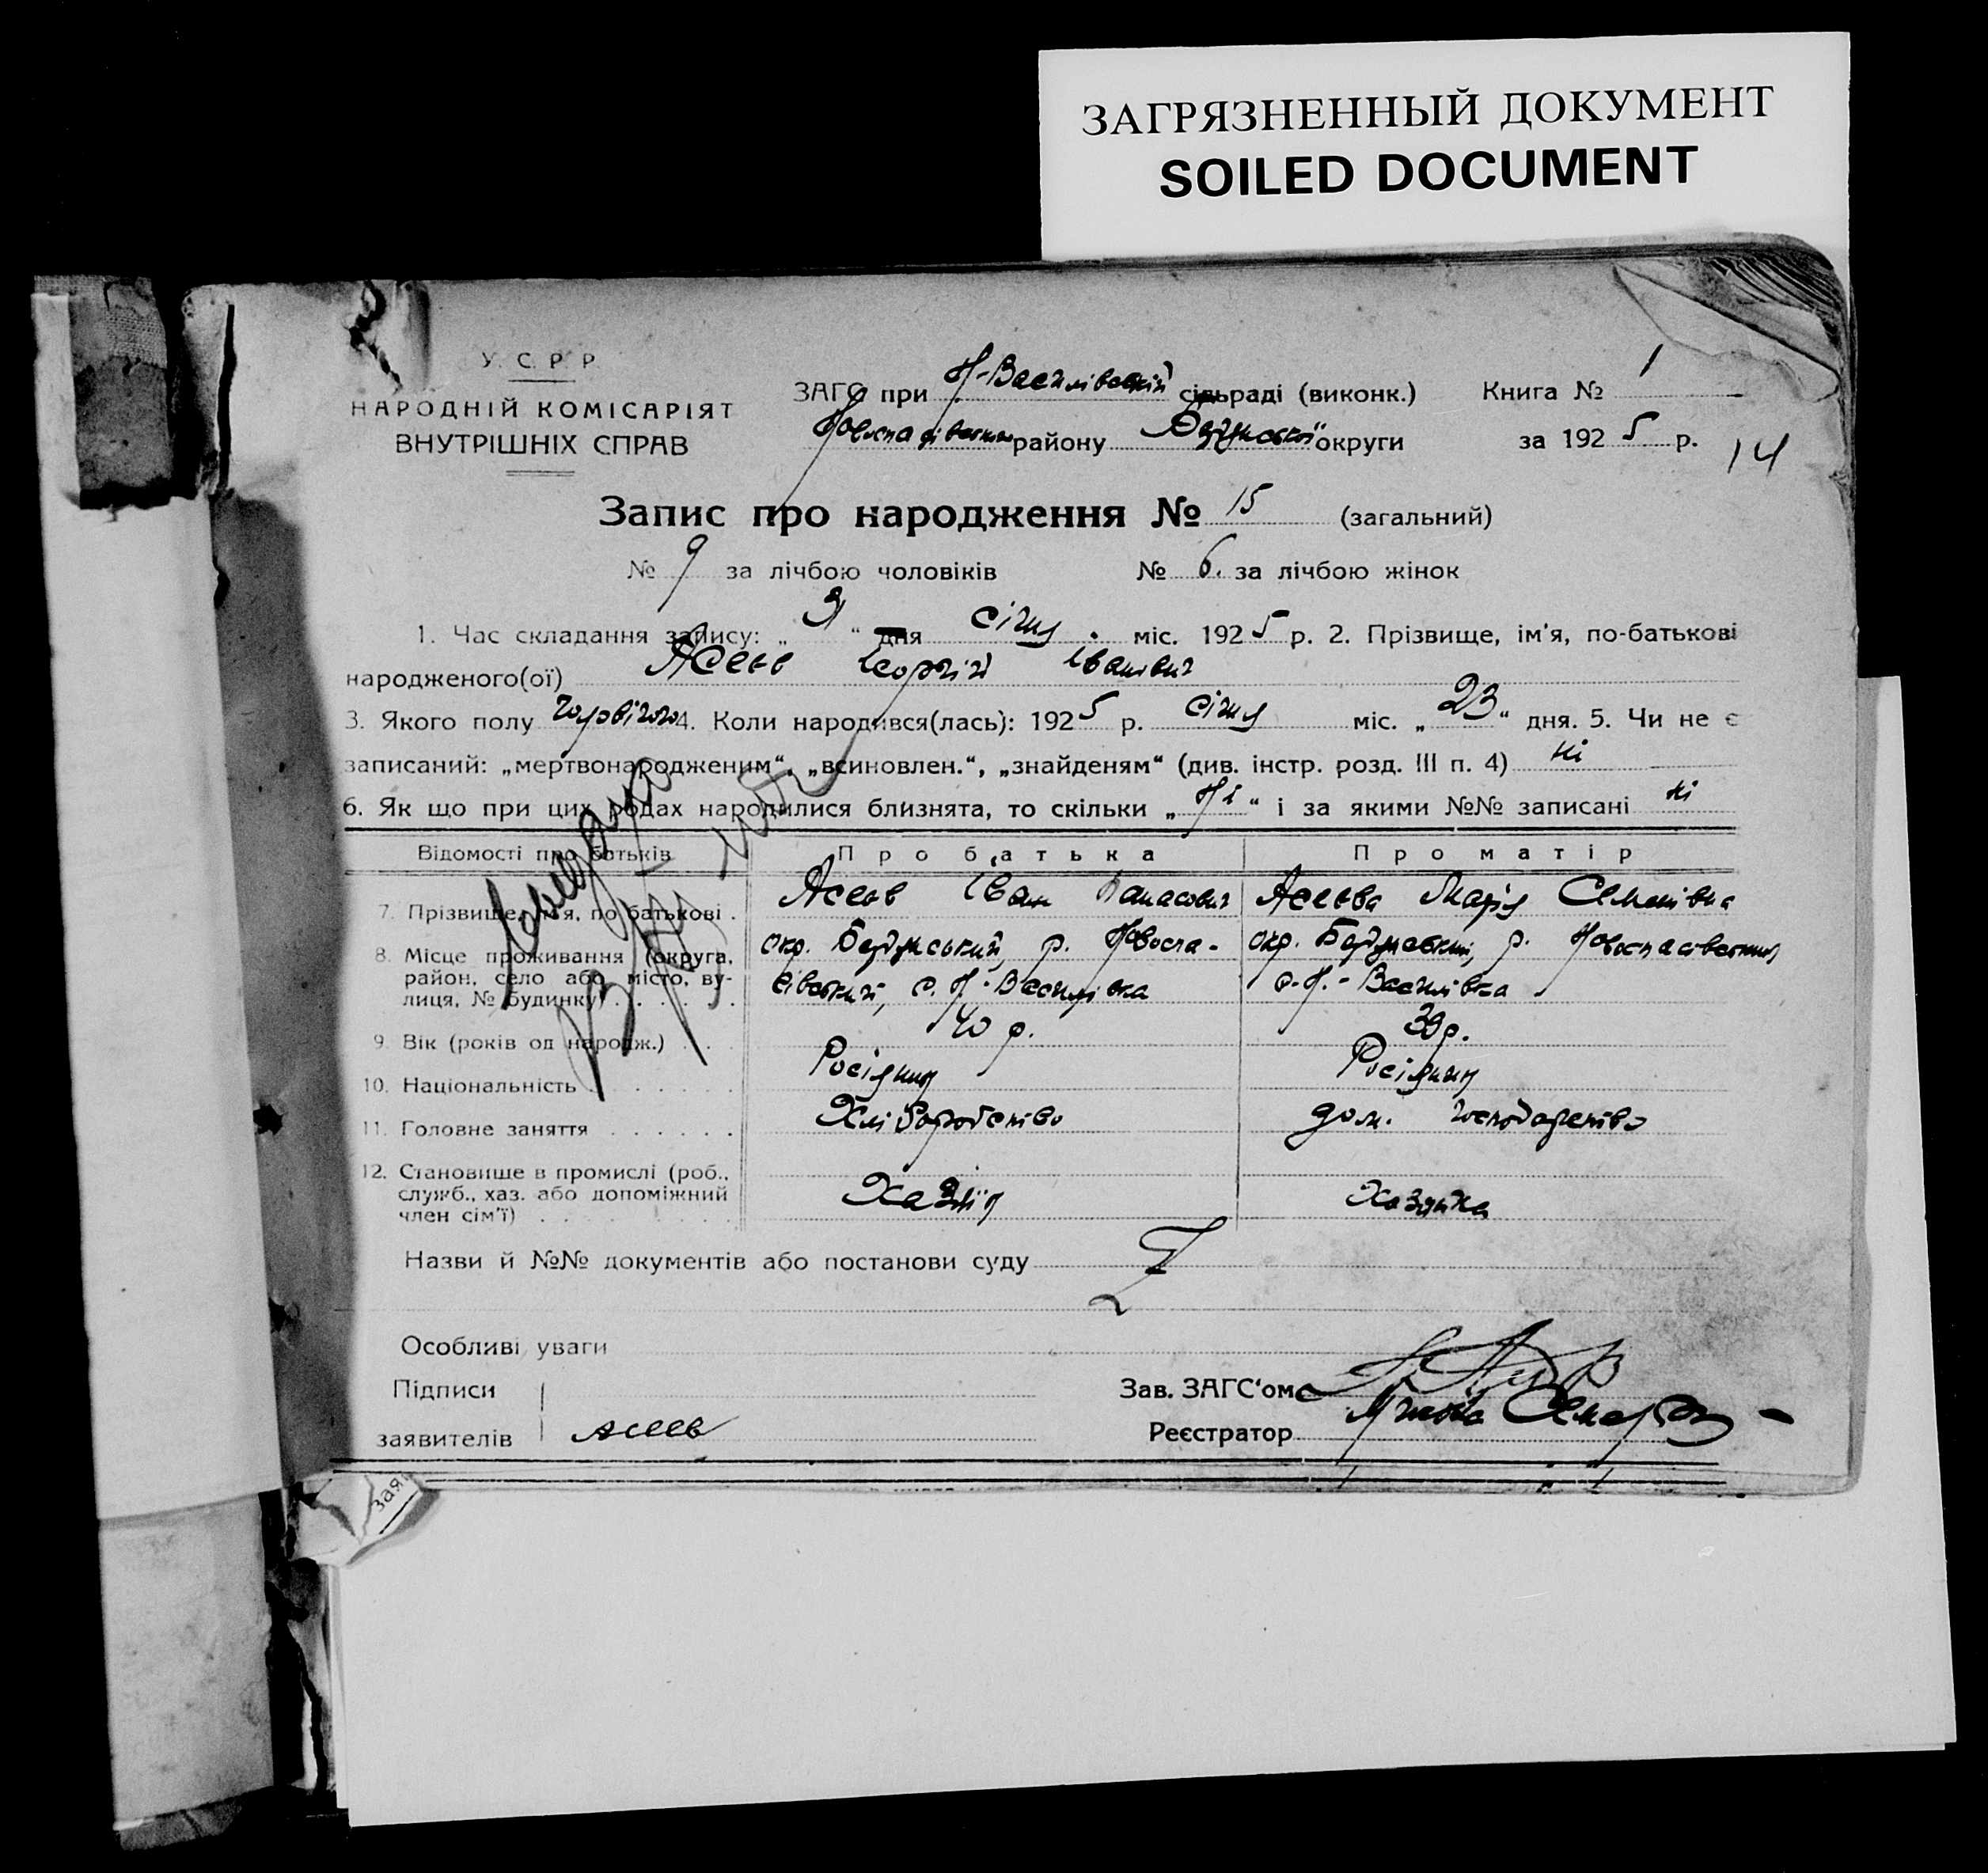 ЗАГРЯЗНЕННЫЙ ДОКУМЕНТ
SOILED DOCUMENT
У. С. Р. Р.
НАРОДНІЙ КОМІСАРІЯТ
ВНУТРІШНІХ СПРАВ
ЗАГС при Н-Василівській сільраді (виконк.) Книга № 1
Новоспасівського району округи за 1925 р.
14
Запис про народження № 15 (загальний)
№ 9 за лічбою чоловіків № 6. за лічбою жінок
1. Час складання запису: „ “ дня січня міс. 1925 р. 2. Прізвище, ім'я, по-батькові
народженого(ої) Асеев Георгій Іванович
3. Якого полу чоловічого 4. Коли народився(лась): 1925 р. січня міс. „23“ дня. 5. Чи не є
записаний: „мертвонародженим“, „всиновлен.“, „знайденям“ (див. інстр. розд. III п. 4) ні
6. Як що при цих родах народилися близнята, то скільки „Ні“ і за якими №№ записані ні
Відомості про батьків Про батька Про матір
7. Прізвище, ім'я, по батькові . Асеев Іван Панасович Асеева Марія Семенівна
8. Місце проживання (округа, район, село або місто, вулиця, № будинку) . . . . . . окр. р. Новоспасівський, с. Н-Василівка окр. р. Новоспасівський, с. Н.-Василівка
9. Вік (років од народж.) . . . 40 р. 39 р.
10. Національність . . . . . . Росіянин
11. Головне заняття . . . . . . Хліборобство дом. господарство
12. Становище в промислі (роб., служб., хаз. або допоміжний член сім'ї) . . . . . . . . . Хазяїн Хазяйка
Назви й №№ документів або постанови суду
Особливі уваги
Підписи
заявителів Асеев
Зав. ЗАГС'ом
Реєстратор
зая